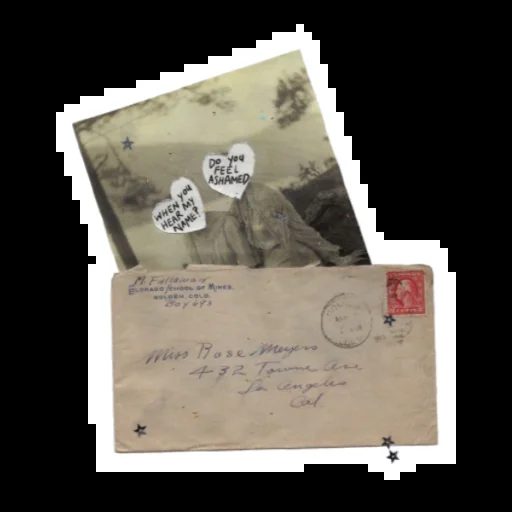 DO YOU
FEEL
ASHAMED
WHEN YOU
HEAR MY
NAME?
COLORADO SCHOOL OF MINES,
GOLDEN, COLO.
Box 493
Miss Rose Meyers
432 Towne Ave
Los Angeles
Cal